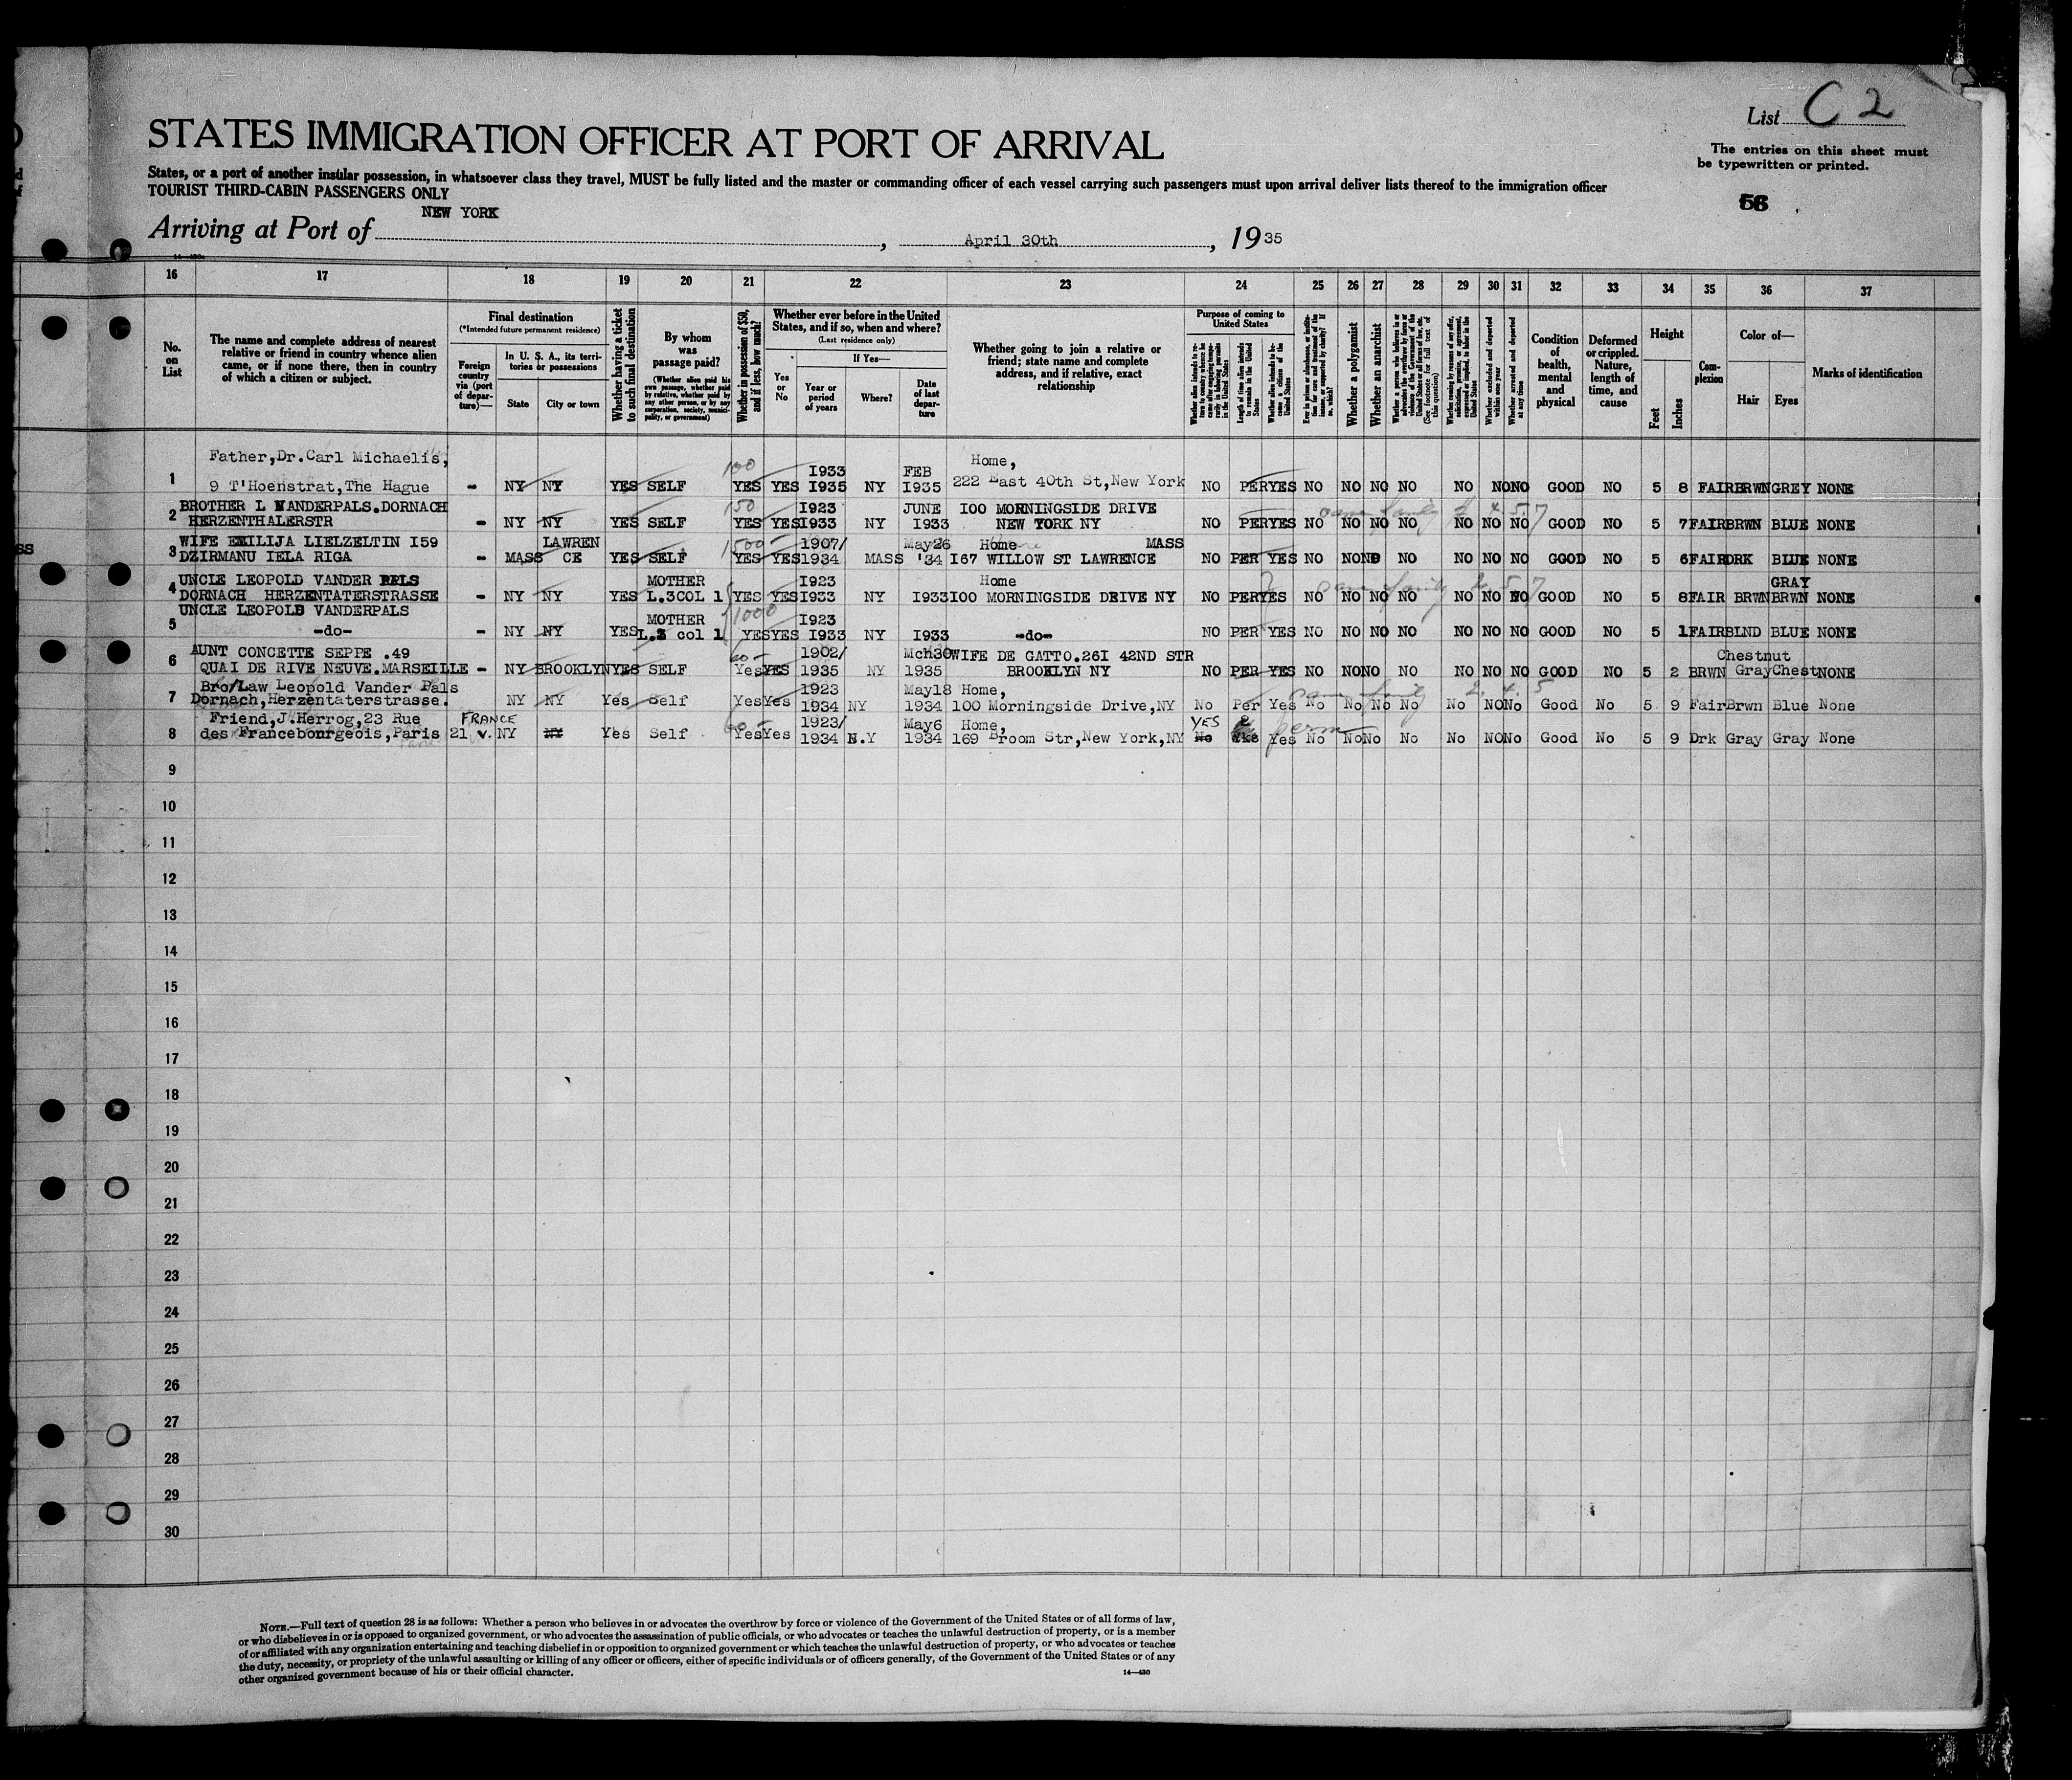 List C 2
STATES IMMIGRATION OFFICER AT PORT OF ARRIVAL
The entries on this sheet must
be typewritten or printed.
States, or a port of another insular possession, in whatsoever class they travel, MUST be fully listed and the master or commanding officer of each vessel carrying such passengers must upon arrival deliver lists thereof to the immigration officer
TOURIST THIRD-CABIN PASSENGERS ONLY
56
Arriving at Port of NEW YORK, April 30th, 1935
16 17 18 19 20 21 22 23 24 25 26 27 28 29 30 31 32 33 34 35 36 37
No. on List
The name and complete address of nearest
relative or friend in country whence alien
came, or if none there, then in country
of which a citizen or subject.
Final destination
(*Intended future permanent residence)
Foreign country via (port of departure)—
In U. S. A., its territories or possessions
State
City or town
Whether having a ticket to such final destination
By whom was passage paid?
(Whether alien paid his own passage, whether paid by relative, whether paid by any other person, or by any corporation, society, municipality, or government)
Whether in possession of $50, and if less, how much?
Whether ever before in the United States, and if so, when and where?
(Last residence only)
Yes or No
If Yes—
Year or period of years
Where?
Date of last departure
Whether going to join a relative or
friend; state name and complete
address, and if relative, exact
relationship
Purpose of coming to United States
Whether a polygamist
Whether an anarchist
Condition of health, mental and physical
Deformed or crippled. Nature, length of time, and cause
Height
Feet
Inches
Complexion
Color of—
Hair
Eyes
Marks of identification
Father,Dr.Carl Michaelis, 100 I933 FEB Home,
1 9 T'Hoenstrat,The Hague - NY NY YES SELF YES YES I935 NY I935 222 East 40th St,New York NO PER YES NO NO NO NO NO NO NO GOOD NO 5 8 FAIR BRWN GREY NONE
BROTHER L VANDERPALS.DORNACH 150 I923 JUNE I00 MORNINGSIDE DRIVE
2 HERZENTHALERSTR - NY NY YES SELF YES YES I933 NY I933 NEW YORK NY NO PER YES NO NO NO NO NO NO NO GOOD NO 5 7 FAIR BRWN BLUE NONE
WIFE EMILIJA LIELZELTIN I59 LAWREN 1500 1907/ May26 Home MASS
3 DZIRMANU IELA RIGA - MASS CE YES SELF YES YES 1934 MASS '34 I67 WILLOW ST LAWRENCE NO PER YES NO NO NO NO NO NO NO GOOD NO 5 6 FAIR DRK BLUE NONE
UNCLE LEOPOLD VANDER PELS MOTHER I923 Home GRAY
4 DORNACH HERZENTATERSTRASSE - NY NY YES L.3COL 1 YES YES I933 NY I933 I00 MORNINGSIDE DRIVE NY NO PER YES NO NO NO NO NO NO NO GOOD NO 5 8 FAIR BRWN BRWN NONE
UNCLE LEOPOLD VANDERPALS MOTHER 1000 I923
5 -do- - NY NY YES L.3 col 1 YES YES I933 NY I933 -do- NO PER YES NO NO NO NO NO NO NO GOOD NO 5 1 FAIR BLND BLUE NONE
AUNT CONCETTE SEPPE .49 60- 1902/ Mch30 WIFE DE GATTO.26I 42ND STR Chestnut
6 QUAI DE RIVE NEUVE.MARSEILLE - NY BROOKLYN YES SELF Yes YES 1935 NY 1935 BROOKLYN NY NO PER YES NO NO NO NO NO NO NO GOOD NO 5 2 BRWN Gray Chest NONE
Bro/Law Leopold Vander Pals 1923 May18 Home, same family 2. 4. 5
7 Dornach,Herzentaterstrasse. NY NY Yes Self Yes Yes 1934 NY 1934 100 Morningside Drive,NY No Per Yes No No No No No No No Good No 5 9 Fair Brwn Blue None
Friend,J.Herrog,23 Rue FRANCE 60- 1923/ May6 Home, YES
8 des Francebourgeois,Paris 21 v. NY NY Yes Self Yes Yes 1934 N.Y 1934 169 Broom Str,New York,NY No Yes perm No No No No No No No Good No 5 9 Drk Gray Gray None
9
10
11
12
13
14
15
16
17
18
19
20
21
22
23
24
25
26
27
28
29
30
NOTE.—Full text of question 28 is as follows: Whether a person who believes in or advocates the overthrow by force or violence of the Government of the United States or of all forms of law,
or who disbelieves in or is opposed to organized government, or who advocates the assassination of public officials, or who advocates or teaches the unlawful destruction of property, or is a member
of or affiliated with any organization entertaining and teaching disbelief in or opposition to organized government or which teaches the unlawful destruction of property, or who advocates or teaches
the duty, necessity, or propriety of the unlawful assaulting or killing of any officer or officers, either of specific individuals or of officers generally, of the Government of the United States or of any
other organized government because of his or their official character.
14—430